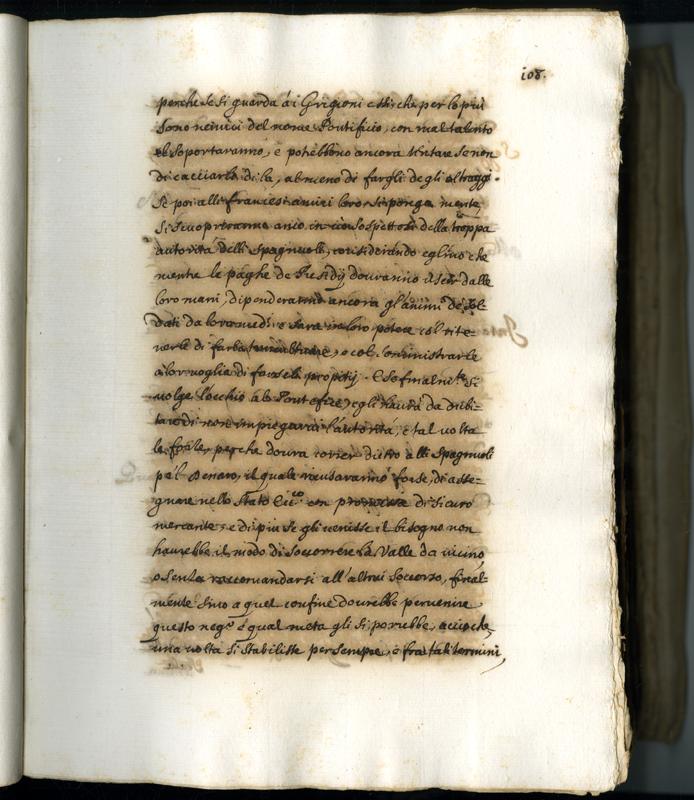 108.
perche se si guarda ài Grigioni essi, che per lo più
sono nemici del nome Pontificio, con mal talento
el soportaranno, e potrebbono ancora tentare se non
di cacciarlo di la, almeno di fargli degli oltraggi.
Se poi alli francesi amici loro si ponga mente,
si scuopriranno anco in ciò sospettosi della troppa
autorità delli Spagnuoli, considerando eglino che
mentre le paghe de Presidij dovranno uscir dalle
loro mani, dipenderanno ancora gl'animi de sol-
dati da loro medi. e sarà in loro potere col rite-
nerle di farli tumultuare, e col somministrarle
a lor voglia di farseli propitij. E se finalm.te si
volge l'occhio al Pontefice, egli havrà da dubi-
tare di non impiegarvi l'autorità, e tal volta
le forze, perche dovrà correr dietro alli Spagnuoli
pe'l denaro, il quale ricusaranno forse di asse-
gnare nello Stato Ecc.co con promessa di sicuro
mercante, e di più se gli venisse il bisogno non
haurebbe il modo di soccorrere la Valle da vicino,
o senza raccomandarsi all'altrui soccorso, final-
mente sino a quel confine dovrebbe pervenire
questo neg.o e qual meta gli si porrebbe, acciò che
una volta si stabilisse per sempre, e fra tali termini,